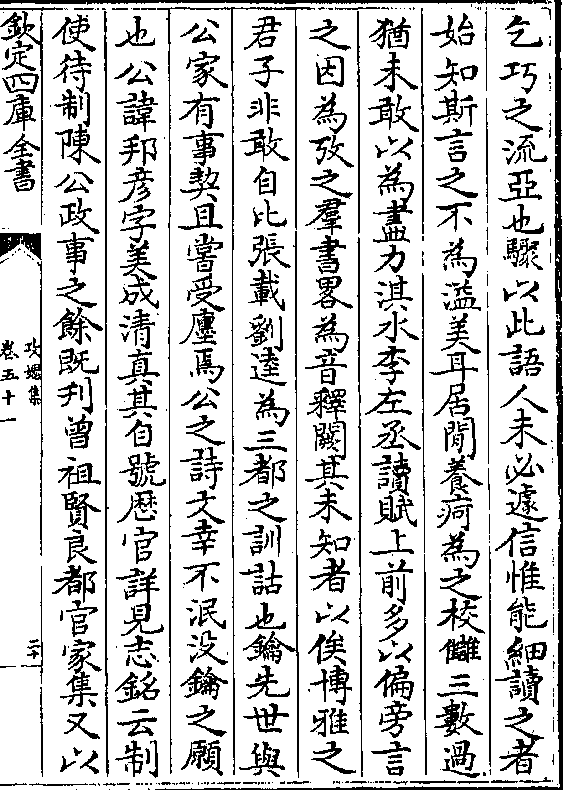 乞巧之流亞也驟以此語人未必遽信惟能細讀之者
始知斯言之不為溢美耳居閒養疴為之校讎三數過
猶未敢以為盡力淇水李左丞讀賦上前多以偏旁言
之因為攷之羣書畧為音釋闕其未知者以俟博雅之
君子非敢自比張載劉逵為三都之訓詁也鑰先世與
公家有事契且嘗受廛焉公之詩文幸不泯没鑰之願
也公諱邦彦字美成清真其自號歴官詳見志銘云制
使待制陳公政事之餘既刋曾祖賢良都官家集又以
欽定四庫全書
攻媿集
卷五十一
二十